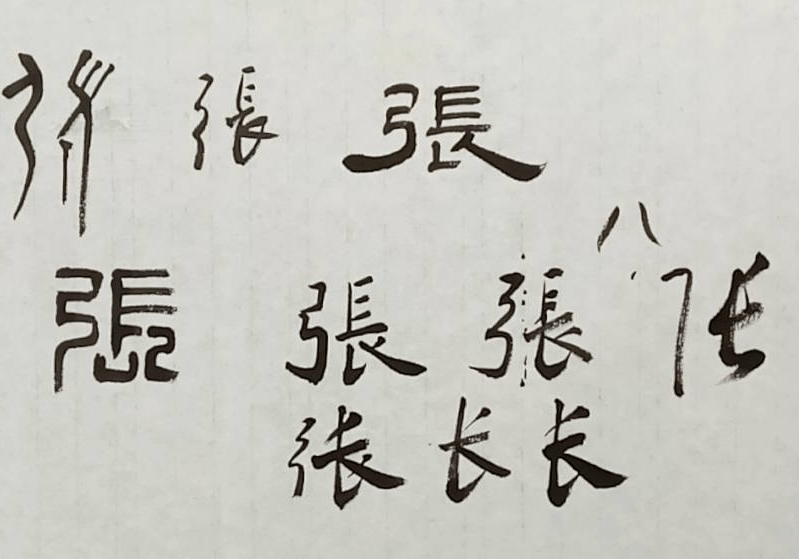 張 張 張
八
張 張 張 张
张 长 长